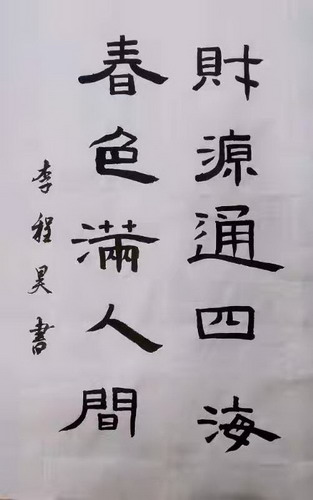 財源通四海
春色滿人間
李程昊書